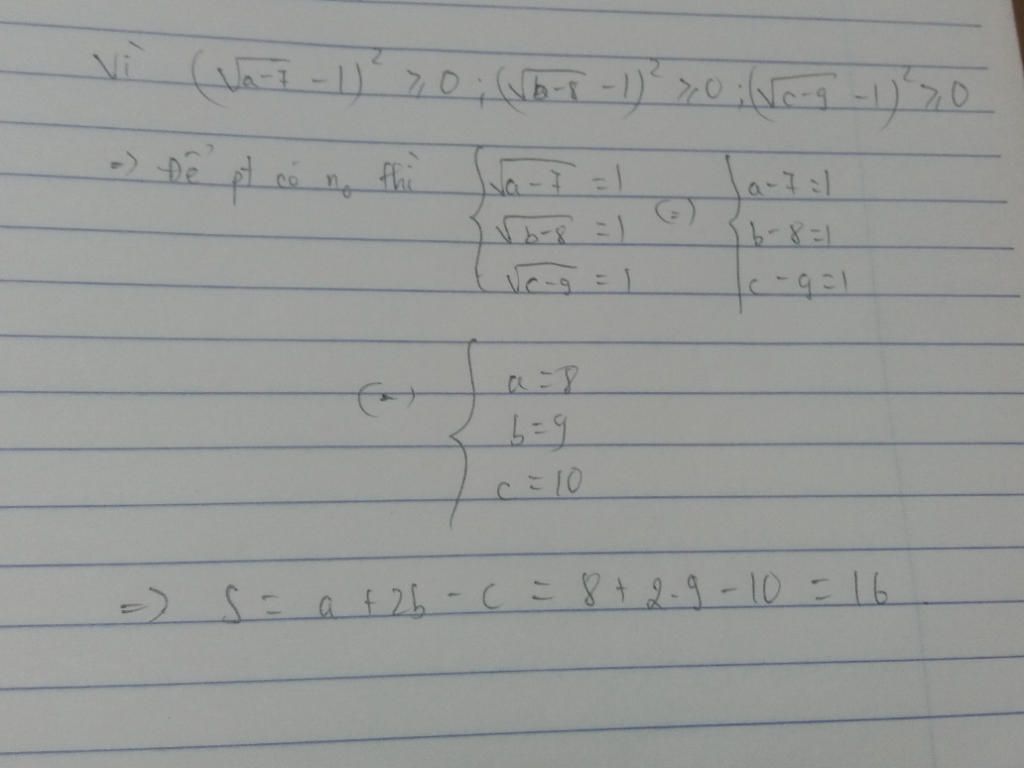 Vì (√a-7 - 1)² ≥ 0 ; (√b-8 - 1)² ≥ 0 ; (√c-9 - 1)² ≥ 0
=> Để pt có n₀ thì { √a-7 = 1 (=) { a-7=1
√b-8 = 1 b-8=1
√c-9 = 1 c-9=1
(=) { a=8
b=9
c=10
=> S = a+2b-c = 8+2.9-10 = 16